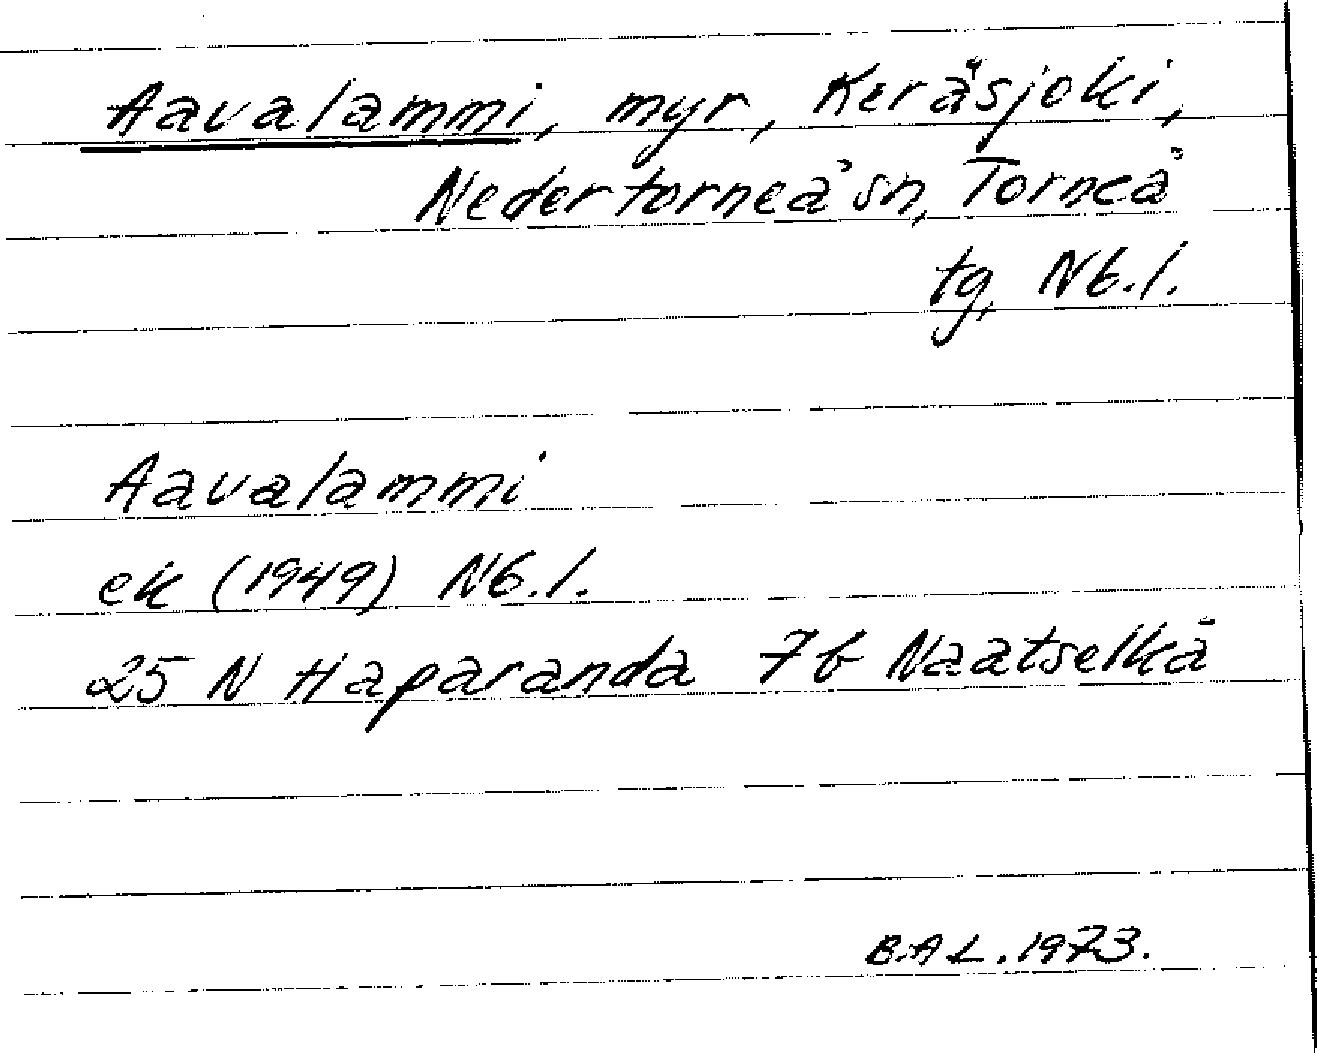 Aavalammi, myr, Keräsjoki,
Nedertorneå sn, Torneå
tg, Nb.l.
Aavalammi
ek (1949) Nb.l.
25 N Haparanda 7b Naatselkä
B.A L. 1973.